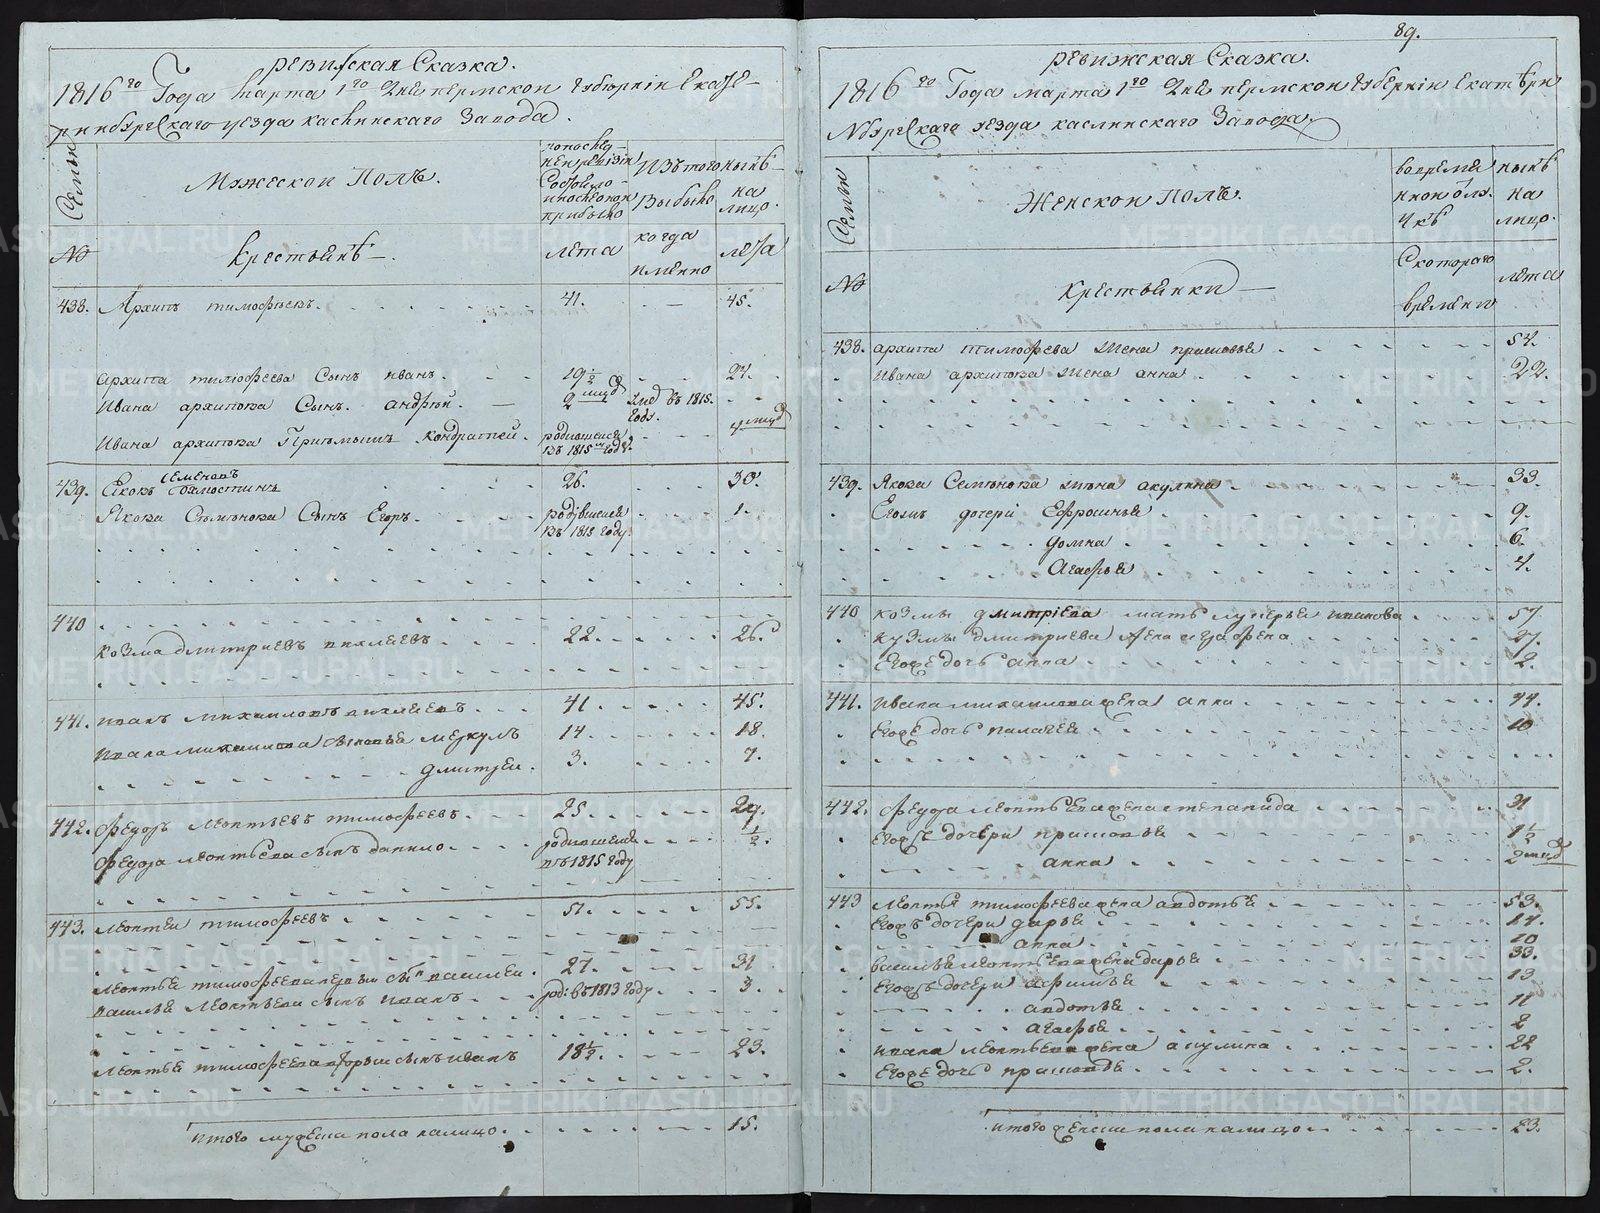 ревижская Сказка.
1816го Года Марта 1го Дня пермской губернiи Екате-
ринбургскаго уезда каслинскаго Завода.
Семьи
Мужеской Полъ.
попослед-
ней ревизiи
Состояло
и после оной
прибыло
Изътого
выбыло
нынѣ
на
лицо.
№
крестьянѣ
лѣта
когда
имянно
лета
438. Архипъ тимофѣевъ. 41. 45.
архипа тимофеева Сынъ иванъ. 19½ 24.
Ивана архипова Сынъ андрѣй. 2 въ 1815.
году.
Ивана архипова Прiемышъ кондратей. родившейся
въ 1815м году.
439. Яковъ Семеновъ 26. 30.
Якова Семѣнова Сынъ Егоръ. родившейся 1.
въ 1815 году.
440
козма дмитриевъ 22. 26.
441. иванъ михаиловъ 41. 45.
ивана михаилова сыновья меркулъ 14. 18.
дмитреи. 3. 7.
442. федоръ леонтьевъ тимофеевъ. 25. 29.
федора леонтьева сынъ данило. родившейся ½.
въ 1815 году
443. леонтеи тимофеевъ 51. 55.
леонтья тимофеева первыи сынъ василеи. 27. 31
василья леонтьева сынъ иванъ род: въ 1813 году. 3.
леонтья тимофеева вторыи сынъ иванъ 18½. 23.
итого мужеска пола налицо. 15.
89.
ревижская Сказка.
1816го Года марта 1го Дня пермской губернiи Екатерин
бургскаго уезда каслинскаго Завода.
Семьи
Женской Полъ.
вовремя
ной отлу-
чкѣ
нынѣ
на
лицо.
№
крестьянки
Скотораго
времени
лѣта
438. архипа тимофева жена прасковья 54.
Ивана архипова жена анна 22.
439. Якова Семѣнова жѣна акулина 33.
Егожъ дочери Ефросинья 9.
домна 6.
Агафья 4.
440 козмы дмитрiева мать лукерья иванова 57.
кузмы дмитриева жена агафена 27.
Егоже дочь анна 2.
441. ивана михаилова жена анна 44.
Егоже дочь палагея 10
442. федора леонтьева жена степанида 31
Егожъ дочери прасковья 1½
анна 2
443 леонтья тимофеева жена авдотья 53.
Егожъ дочери дарья 14.
анна 10
василья леонтьева жена дарья 33.
Егожъ дочери афимья 13
авдотья 11
агафья 2
ивана леонтьева жена акулина 22
Егоже дочь прасковья 2.
итого женска пола налицо 23.
METRIKI.GASO-URAL.RU